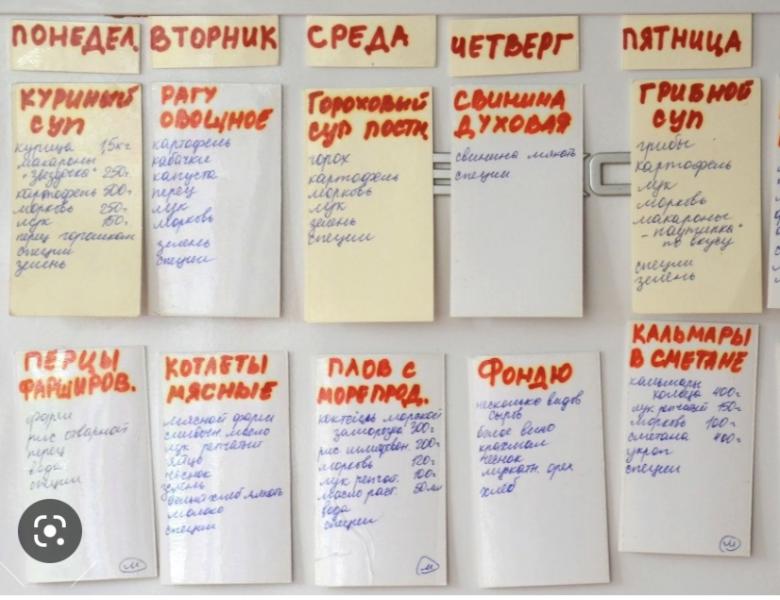 ПОНЕДЕЛ.
ВТОРНИК
СРЕДА
ЧЕТВЕРГ
ПЯТНИЦА
КУРИНЫЙ
СУП
курица 1,5кг
макароны
"звездочка" 250г
картофель 500г
морковь 250г
лук 150г
перец горошком
специи
зелень
РАГУ
ОВОЩНОЕ
картофель
кабачки
капуста
перец
лук
морковь
зелень
специи
ГОРОХОВЫЙ
СУП ПОСТН
горох
картофель
морковь
лук
зелень
специи
СВИНИНА
ДУХОВАЯ
свинина мякоть
специи
ГРИБНОЙ
СУП
грибы
картофель
лук
морковь
макароны
- паутинка"
по вкусу
специи
зелень
ПЕРЦЫ
ФАРШИРОВ.
фарш
рис отварной
перец
вода
специи
м
КОТЛЕТЫ
МЯСНЫЕ
мясной фарш
сливочн. масло
лук репчатый
яйцо
чеснок
зелень
белый хлеб мякоть
молоко
специи
ПЛОВ С
МОРЕПРОД.
коктейль морской
заморозка 300г
рис шлифован. 200г
морковь 120г
лук репчат. 100г
масло раст. 50мл
вода
специи
м
ФОНДЮ
несколько видов
сыров
белое вино
крахмал
чеснок
мускатн. орех
хлеб
КАЛЬМАРЫ
В СМЕТАНЕ
кальмары
кольца 400г
лук репчатый 150г
морковь 100г
сметана 400г
укроп
специи
м